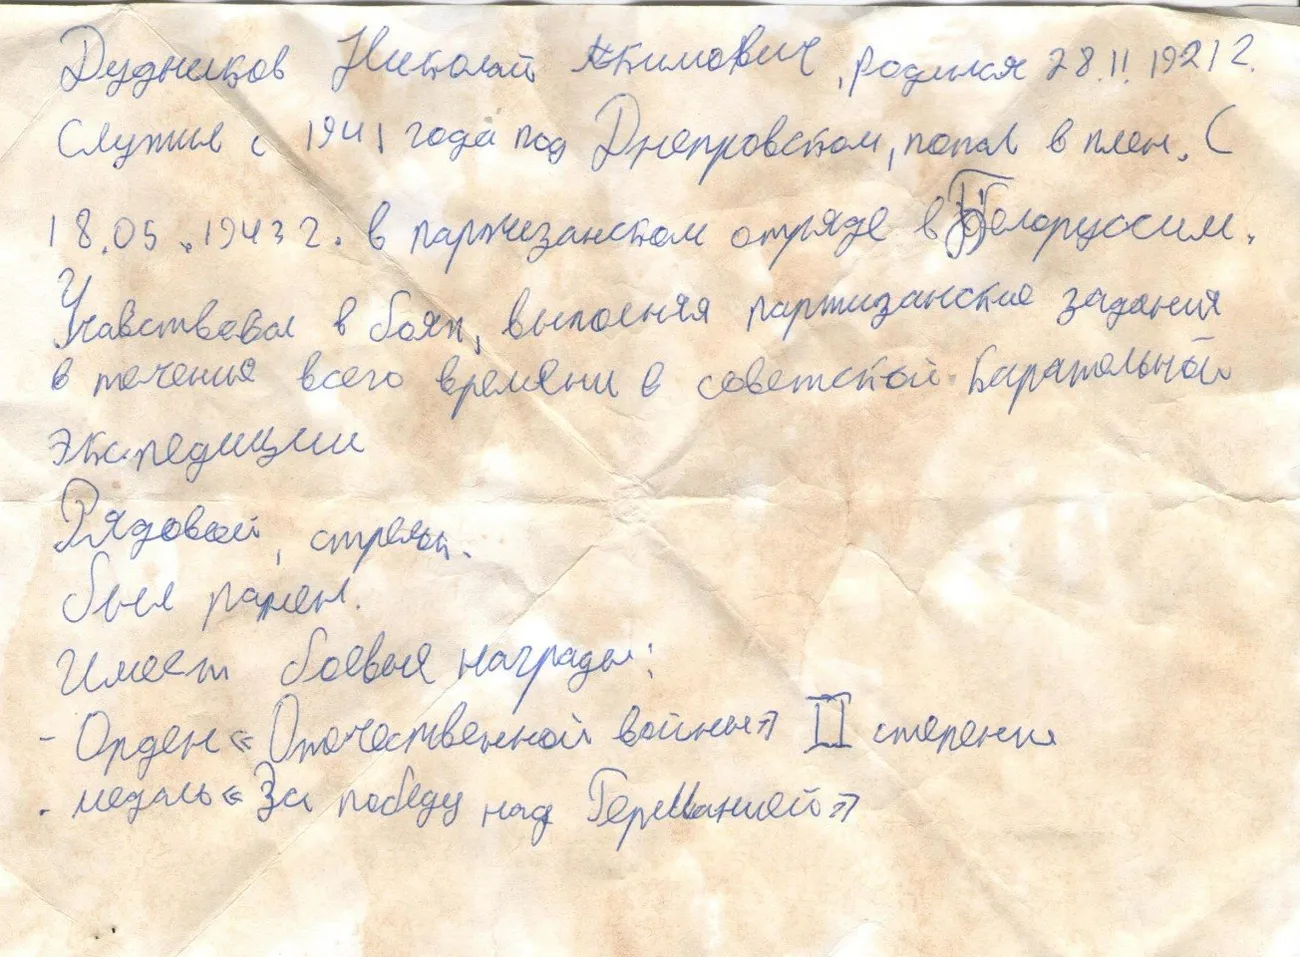 Дудников Николай Акимович, родился 28.11.1921г.
Служил с 1941 года под Днепровском, попал в плен. С
18.05.1943г. в партизанском отряде в Белоруссии.
Учавствовал в боях, выполняя партизанские задания
в течение всего времени в советской карательной
экспедиции
Рядовой, стрелок.
был ранен.
Имеет боевые награды:
- Орден «Отечественной войны» II степени
- медаль «За победу над Германией»